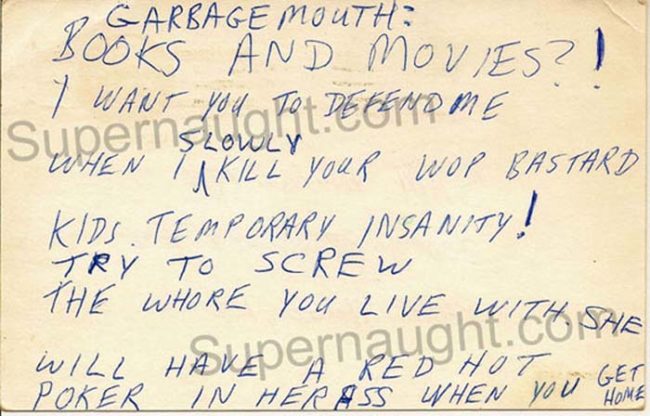 GARBAGEMOUTH:
BOOKS AND MOVIES?!
I WANT YOU TO DEFEND ME
SLOWLY
WHEN I ^ KILL YOUR WOP BASTARD
KIDS. TEMPORARY INSANITY!
TRY TO SCREW
THE WHORE YOU LIVE WITH. SHE
WILL HAVE A RED HOT
POKER IN HER ASS WHEN YOU GET
HOME
Supernaught.com
Supernaught.com